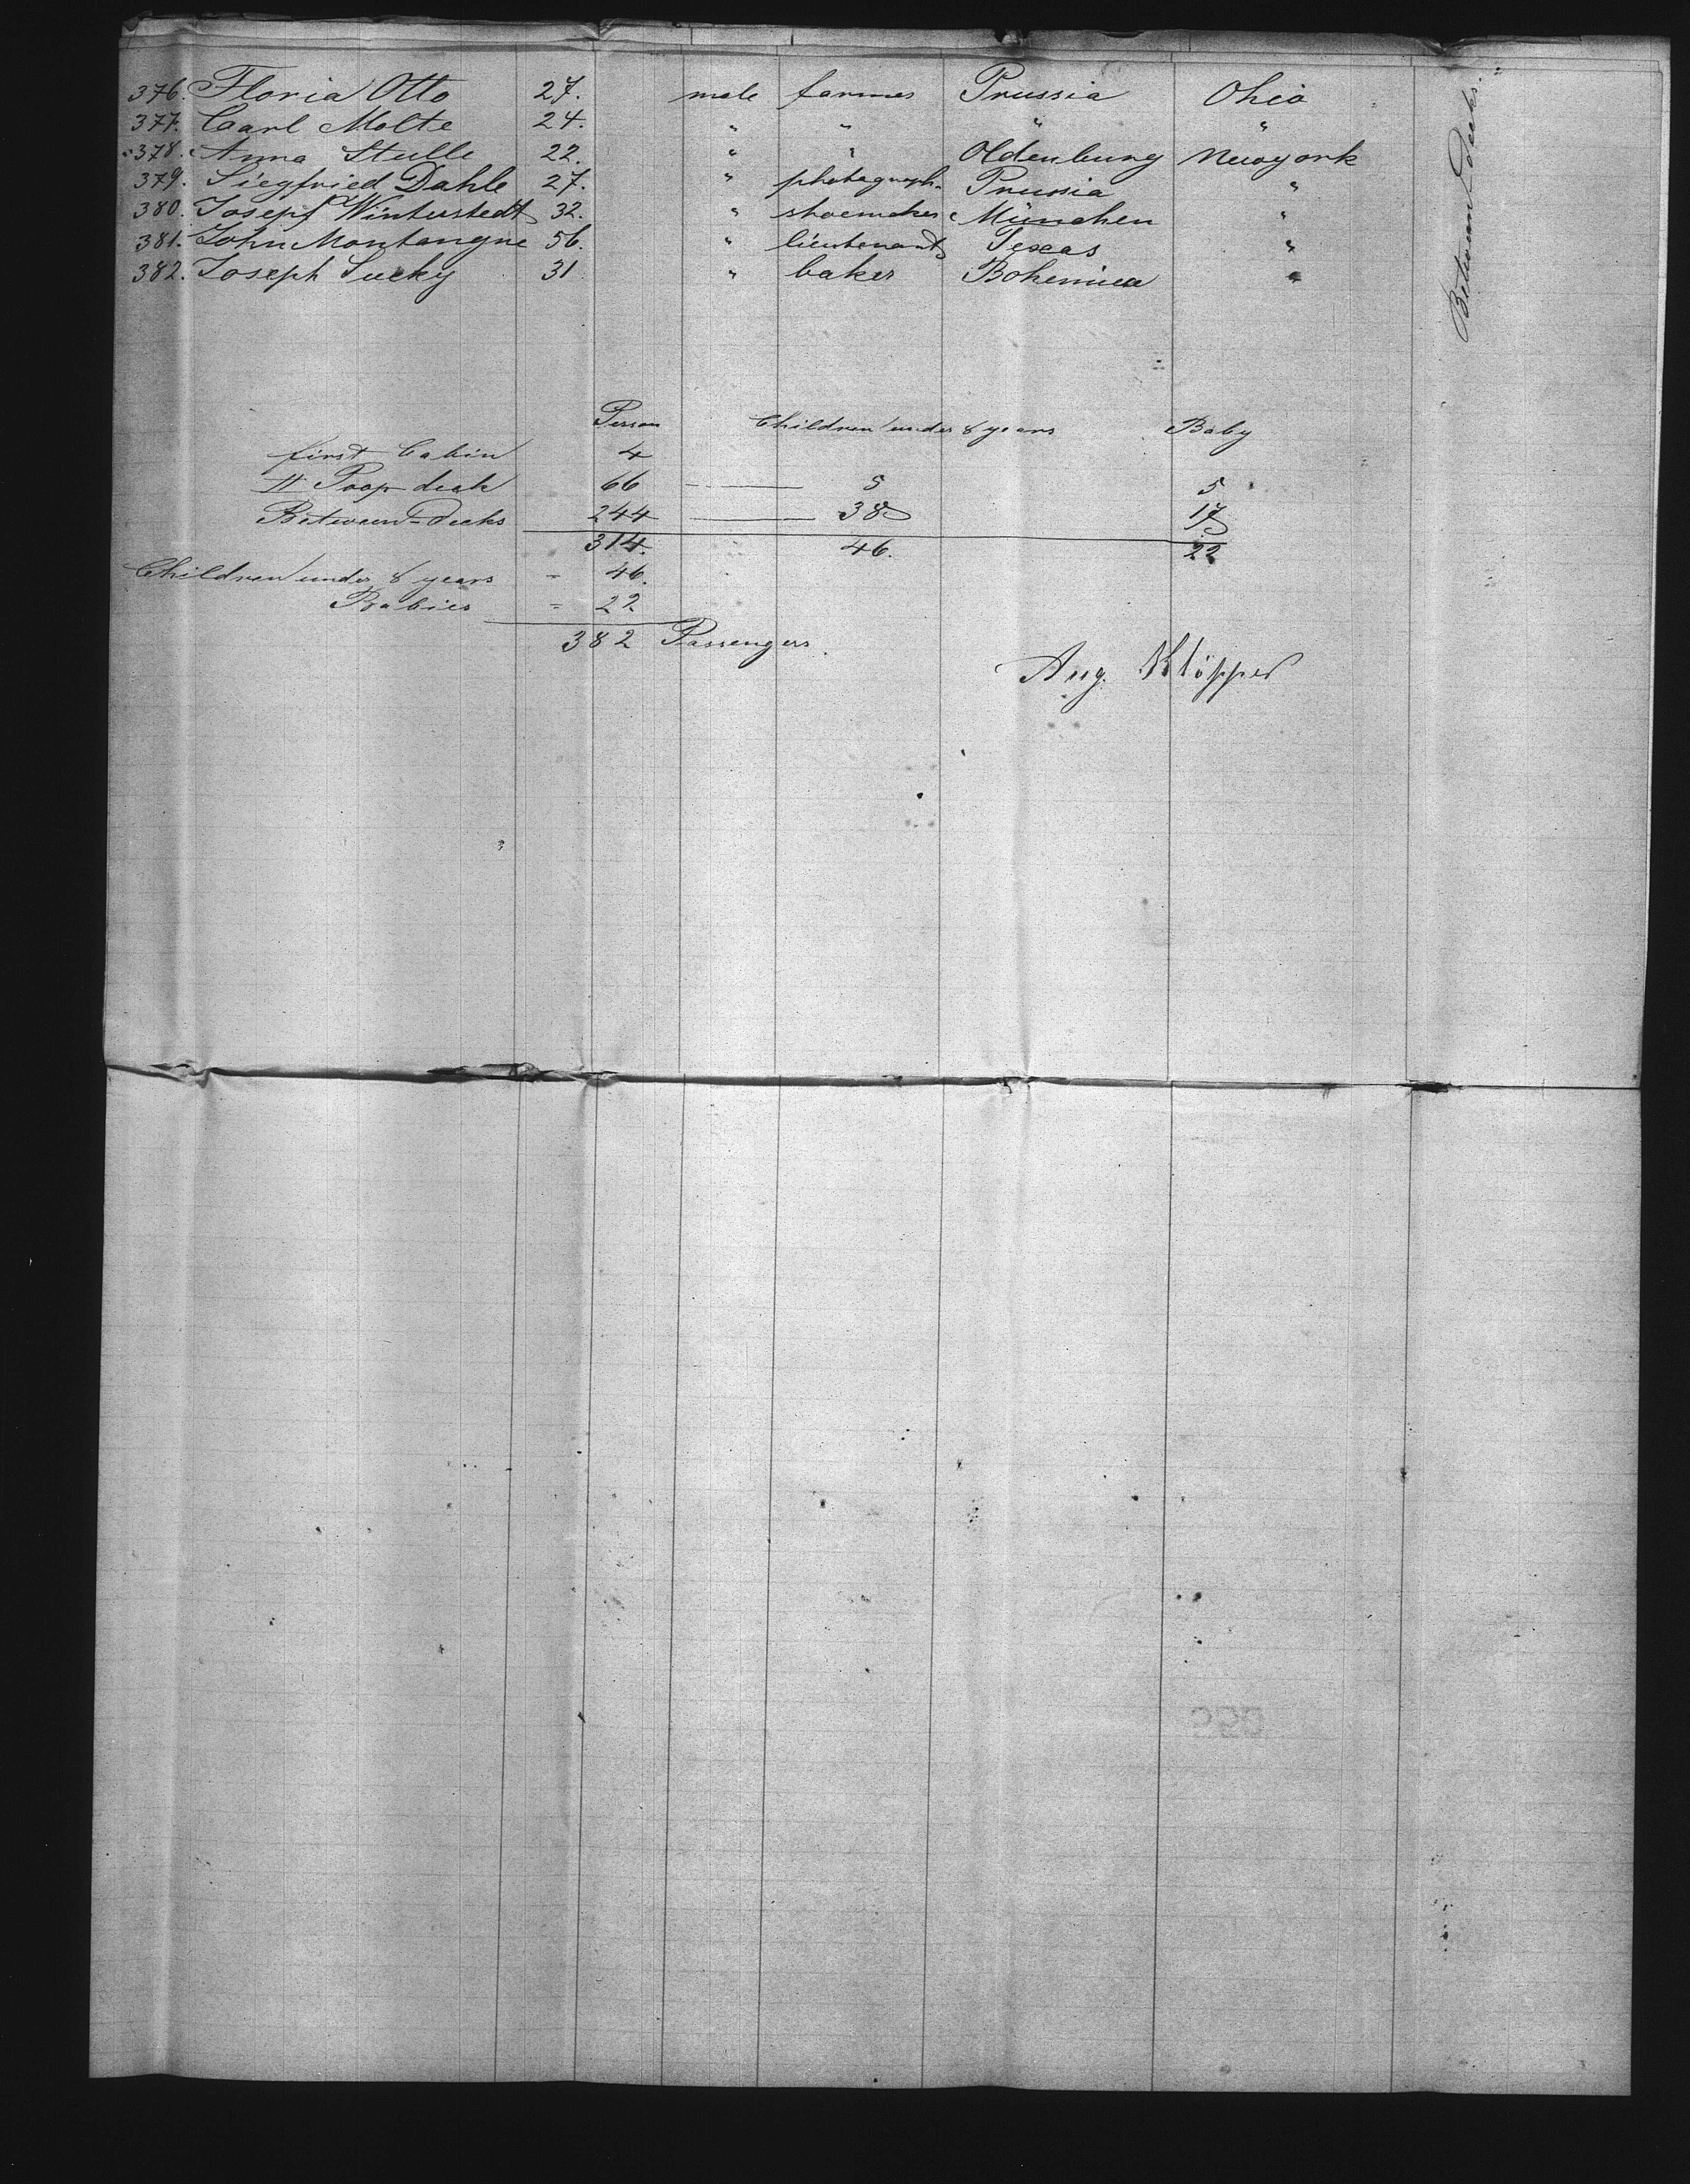 376. Floria Otto 27. male farmer Prussia Ohio
377. Carl Molte 24. " " " "
378. Anna Stulle 22. " " Oldenburg Newyork
379. Siegfried Dahle 27. " photograph. Prussia "
380. Josepf Winterstedt 32. " shoemaker München "
381. John Montangne 56. " lieutenant Texas "
382. Joseph Sucky 31 " baker Bohemia "
Between decks.
Person Children under 8 years Baby
first Cabin 4
II Poop deck 66 5 5
Between-decks 244 38 17
314. 46. 22
Children under 8 years = 46.
Babies = 22
382 Passengers.
Aug. Klöpper